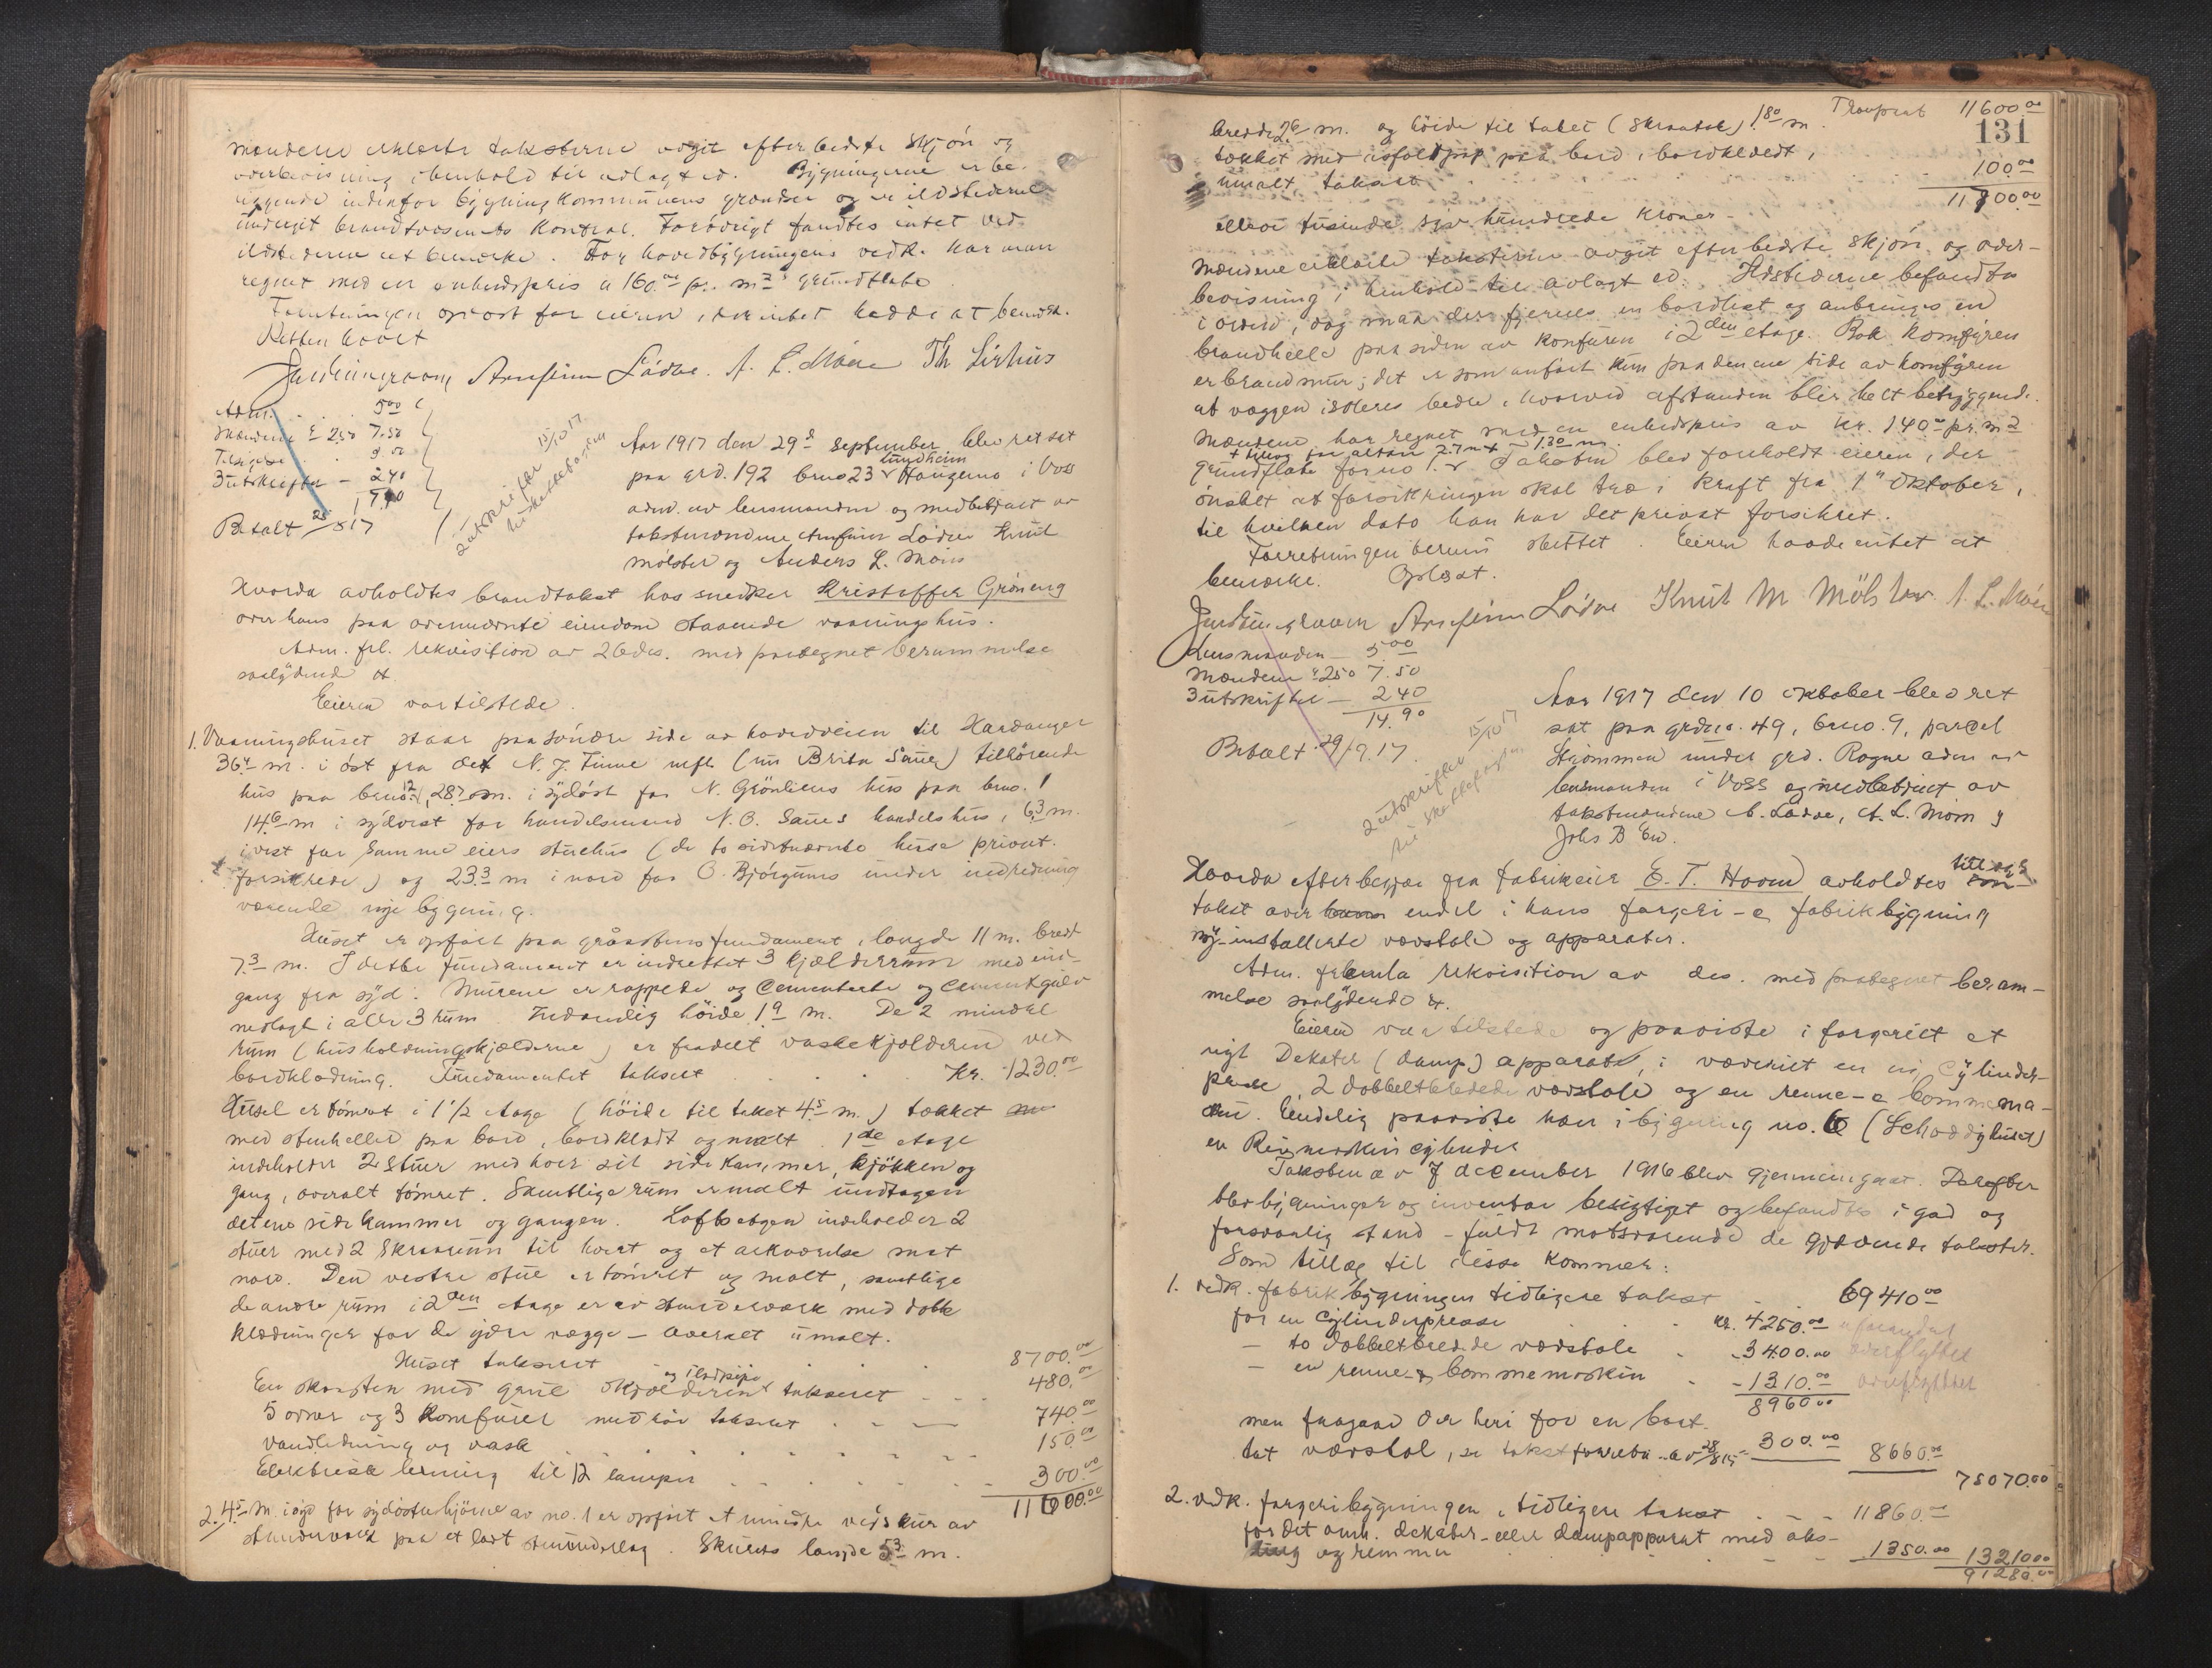 mændene erklærte taksterne avgit efter bedste skjøn og
overbevisning i henhold til avlagt ed. Bygningerne er be-
liggende indenfor bygningskommunens grændse og er ildstederne
undergit brandvæsenets kontrol. Forøvrigt fandtes intet ved
ildstederne at bemerke. For hovedbygningens vedk. har man
regnet med en enhetspris a 160.00 pr. m2 grundflate
Forretningen oplæst for eieren, der intet hadde at bemerke.
Retten hævet
Arnfinn Lödve. A. L. Möen Th. Lirhus
Adm. . . . 5.00
Mændene a 2.50 7.50
3 utskrifter - 2.40
Betalt 25/5 17
2 utskrifter 15/10 17
til skattefogden
Aar 1917 den 29de september blev ret sat
paa grd. 192 brno 23 Lundheim Haugamo i Voss
adm. av lensmanden og medbetjent av
takstmændene Arnfinn Lödve Knut
Mölster og Anders L. Möen
Hvorda avholdtes brandtakst hos snedker Kristoffer Gröneng
over hans paa ovennævnte eiendom staaende vaaningshus.
Adm. frl. rekvisition av 26 ds. med paategnet berammelse
saalydende &.
Eieren var tilstede.
1. Vaaningshuset staar paa söndre side av hovedveien til Hardanger
36.4 m. i öst fra det N. J. Finne mfl. (nu Brita Saue) tilhörende
hus paa brno. 12, 28.7 m. i sydöst for N. Grönliens hus paa brno. 1
14.6 m i sydvest for handelsmand N. O. Saues handelshus, 6.3 m.
i vest for samme eiers stuehus (de to sidstnævnte huse privat.
forsikrede) og 23.3 m i nord for O. Björgums under indredning
værende nye bygning.
Huset er opfört paa gråstens fundament, længde 11 m. bredt
7.3 m. I dette fundament er indrettet 3 kjælderrum med ind-
gang fra syd. Murene er rappede og cementerte og cementgulv
nedlagt i alle 3 rum. Indvendig höide 1.9 m. De 2 mindre
rum (husholdningskjælderne) er fradelt vaskekjælderen ved
bordklædning. Fundamentet takseret . . . Kr. 1230.00
Huset er tömret i 1 1/2 etage (höide til taket 4.5 m.) tækket
med stenheller paa bord, bordklædt og malt. 1ste etage
indeholder 2 stuer med hver sit sidekammer, kjökken og
gang, overalt tömret. Samtlige rum er malt undtagen
det ene sidekammer og gangen. Loftsetagen indeholder 2
stuer med 2 skraarum til hver og et arkværelse mot
nord. Den vestre stue er tömret og malt, samtlige
de andre rum i 2den etage er av stendeværk med dobb.
klædninger for de ydre vægge - overalt umalt.
Huset takseret 8700.00
En skorsten med grue i kjælderen og ildpipe takseret 480.00
5 ovner og 3 komfurer med rör takseret 740.00
Vandledning og vask 150.00
Elektrisk lerning til 12 lamper 300.00
11600.00
2. 4.5 m. i syd for sydöstre hjörne av no. 1 er opfört et mindre vedskur av
stendeverk paa et lavt stenunderlag. Skurets længde 5.3 m.
Transport 11600.00
131
bredde 2.6 m. og höide til taket (skraatak) 1.80 m.
tækket med asfaltpap paa bord, bordklædt,
umalt, takset 100.00
11700.00
elleve tusinde syv hundrede kroner -
Mændene erklærte taksterne avgit efter bedste skjön og over-
bevisning i henhold til avlagt ed. Ildstederne befandtes
i orden, dog maa der fjernes en bordlist og anbringes en
brandhelle paa siden av komfuren i 2den etage. Bak komfyren
er brandmur; det er som anfört kun paa den ene side av komfyren
at væggen isoleres bedre, hvorved afstanden blir helt betryggende.
Mændene har regnet med en enhetspris av kr. 140.00 pr. m2
+ tillæg for altan 2.7 m x 1.30 m.
grundflate for no 1. Taksten blev forholdt eieren, der
önsket at forsikringen skal træ i kraft fra 1ste oktober,
til hvilken dato han har det privat forsikret.
Forretningen derved sluttet. Eieren havde intet at
bemærke. Oplæst.
Arnfinn Lödve Knut M Mölster A. L. Möen
Lensmanden - 5.00
Mændene a 2.50 7.50
3 utskrifter - 2.40
14.90
Betalt 29/9 17.
2 utskrifter 15/10 17
til skattefogden
Aar 1917 den 10 oktober blev ret
sat paa grdno. 49, brno. 9, parcel
Strömmen under grd. Rogne adm av
lensmanden i Voss og medbetjent av
takstmændene A. Lödve, A. L. Möen og
Johs B Eid.
Hvorda efter begjær fra fabrikeier E. T. Hovd avholdtes tillægs
takst over endel i hans fargeri- og fabrikbygning
ny-installerte vævstole og apparater.
Adm. fremla rekvisition av ds. med paategnet beram-
melse saalydende &.
Eieren var tilstede og paaviste i fargeriet et
nyt Dekater (damp) apparat, i væveriet en ny cylinder-
presse, 2 dobbeltbredede vævstole og en renne- & bommema-
skin. Endelig paaviste han i bygning no. 6 (Schoddyhuset)
en Rivmaskin cylinder
Taksten av 7 december 1916 blev gjennemgaat. Derefter
blev bygninger og inventar besigtiget og befandtes i god og
forsvarlig stand - fuldt motsvarende de gjældende takster.
Som tillæg til disse kommer:
1. vedk. fabrikbygningen tidligere takst . . 69410.00
for en cylinderpresse kr. 4250.00 uforandret
- to dobbeltbredede vævstole - 3400.00 overflyttet
- en renne- & bommemaskin - 1310.00 overflyttet
8960.00
men fragaar der heri for en bort-
tat vævstol, se takstforretn. av 28/8 15 - 300.00 8660.00
78070.00
2. vedk. fargeribygningen, tidligere takst . . . 11860.00
for det omh. dekater- eller dampapparat med aks-
ling og remmer 1350.00 13210.00
91280.00